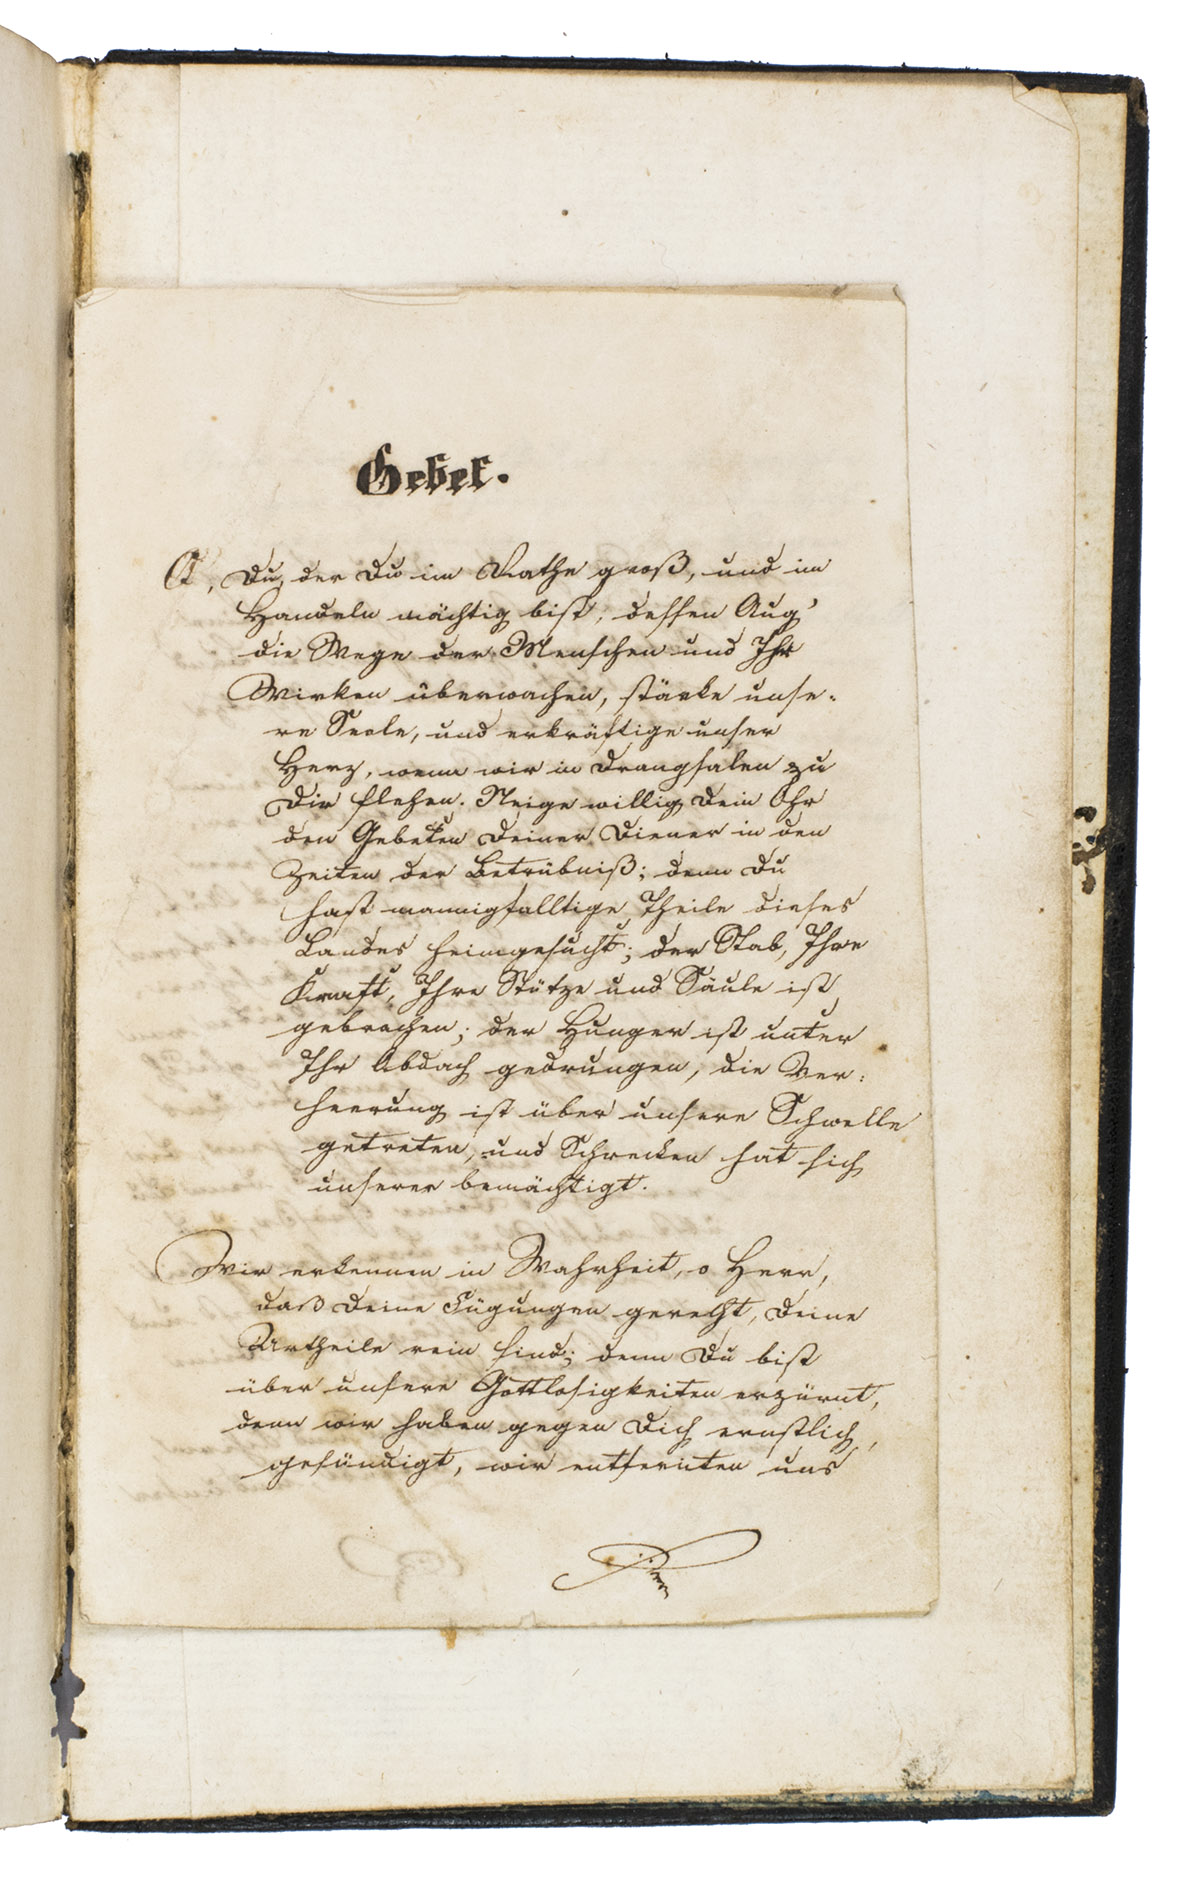 Gebet.
O, Du, der Du im Rathe groß, und im
Handeln mächtig bist, dessen Aug'
die Wege der Menschen und Ihr
Wirken überwachen, stärke unse-
re Seele, und erkräftige unser
Herz, wenn wir in Drangsalen zu
Dir flehen. Neige willig Dein Ohr
den Gebeten Deiner Diener in den
Zeiten der Betrübniß; denn Du
hast mannigfalltige Theile dieses
Landes heimgesucht; der Stab, Ihre
Kraft, Ihre Stütze und Säule ist
gebrochen; der Hunger ist unter
Ihr Abdach gedrungen, die Ver-
heerung ist über unsere Schwelle
getreten, und Schrecken hat sich
unserer bemächtigt.
Wir erkennen in Wahrheit, o Herr,
daß Deine Fügungen gerecht, Deine
Urtheile rein sind; denn Du bist
über unsere Gottlosigkeiten erzürnt,
denn wir haben gegen Dich ernstlich
gesündigt, wir entfernten uns